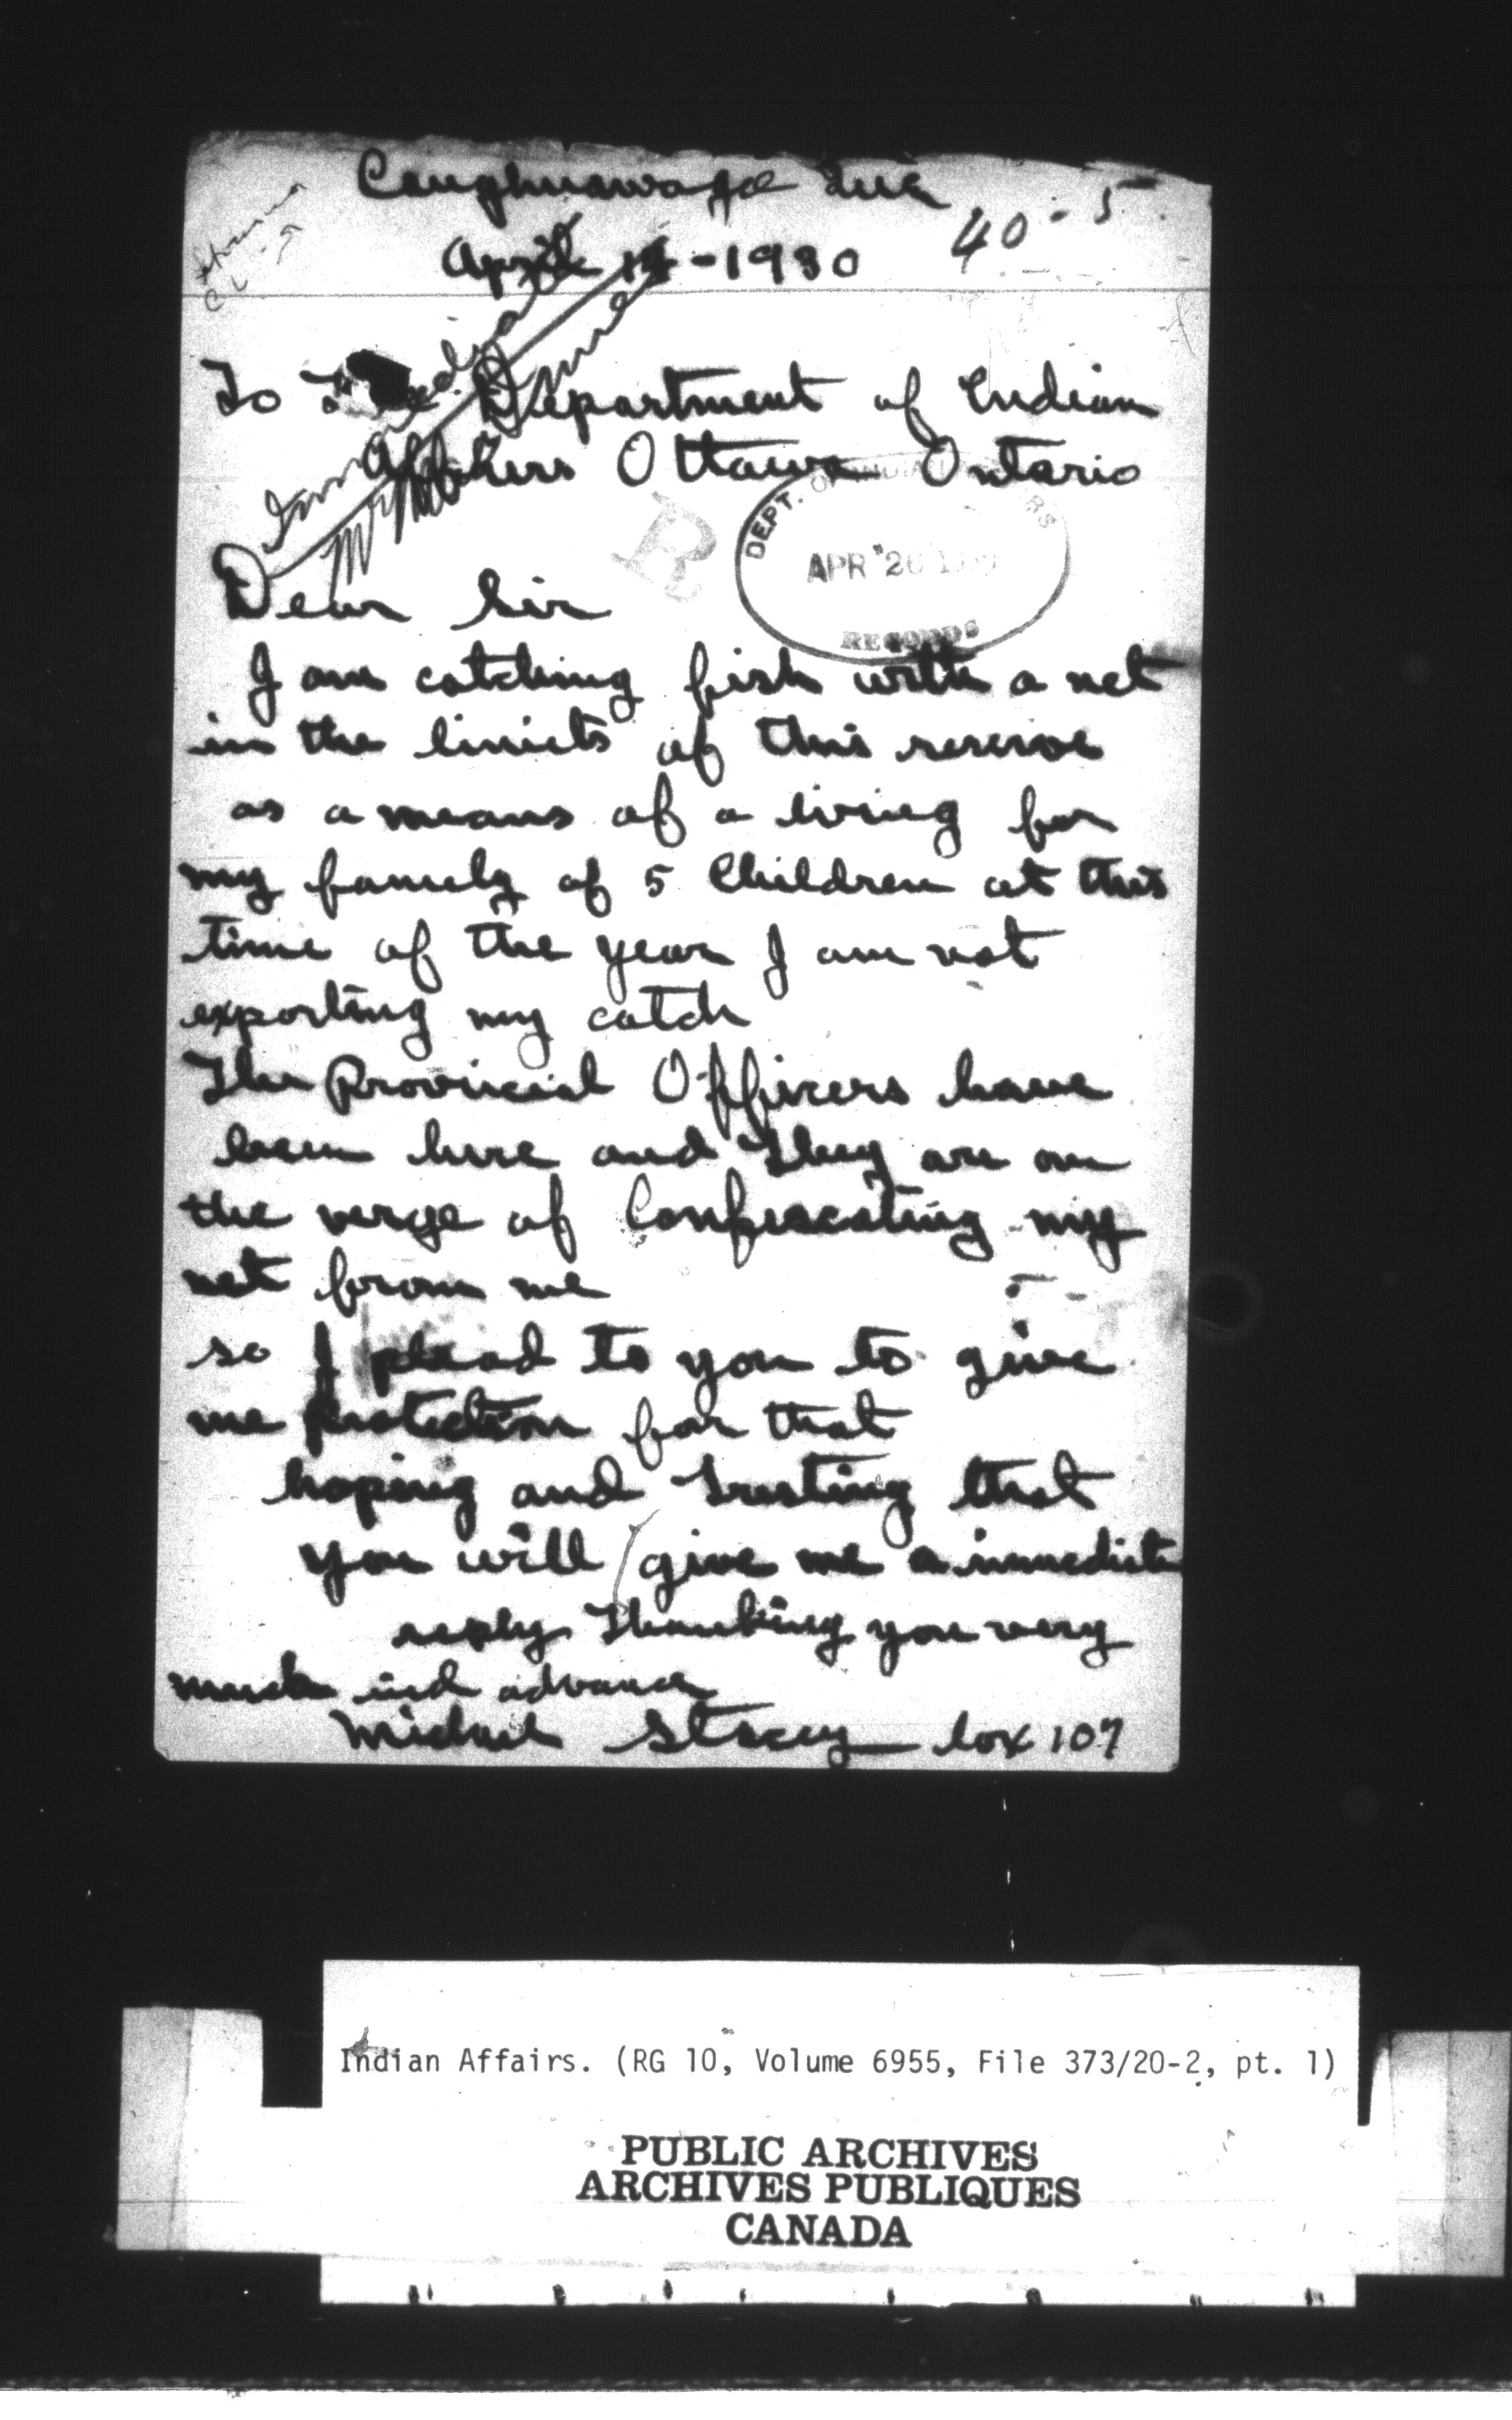 Caughnawaga Que
40-5
April 14-1930
Immediate
To The Department of Indian
Affairs Ottawa Ontario
DEPT. OF INDIAN AFFAIRS
APR 26
RECORDS
R
Dear Sir
I am catching fish with a net
in the limits of this reserve
as a means of a living for
my family of 5 Children at this
time of the year I am not
exporting my catch
The Provincial Officers have
been here and They are on
the verge of Confiscating my
net from me
so I plead to you to give
me protection for that
hoping and trusting that
you will give me a immediate
reply Thanking you very
much ind advance
Michael Stacey box 107
Indian Affairs. (RG 10, Volume 6955, File 373/20-2, pt. 1)
PUBLIC ARCHIVES
ARCHIVES PUBLIQUES
CANADA